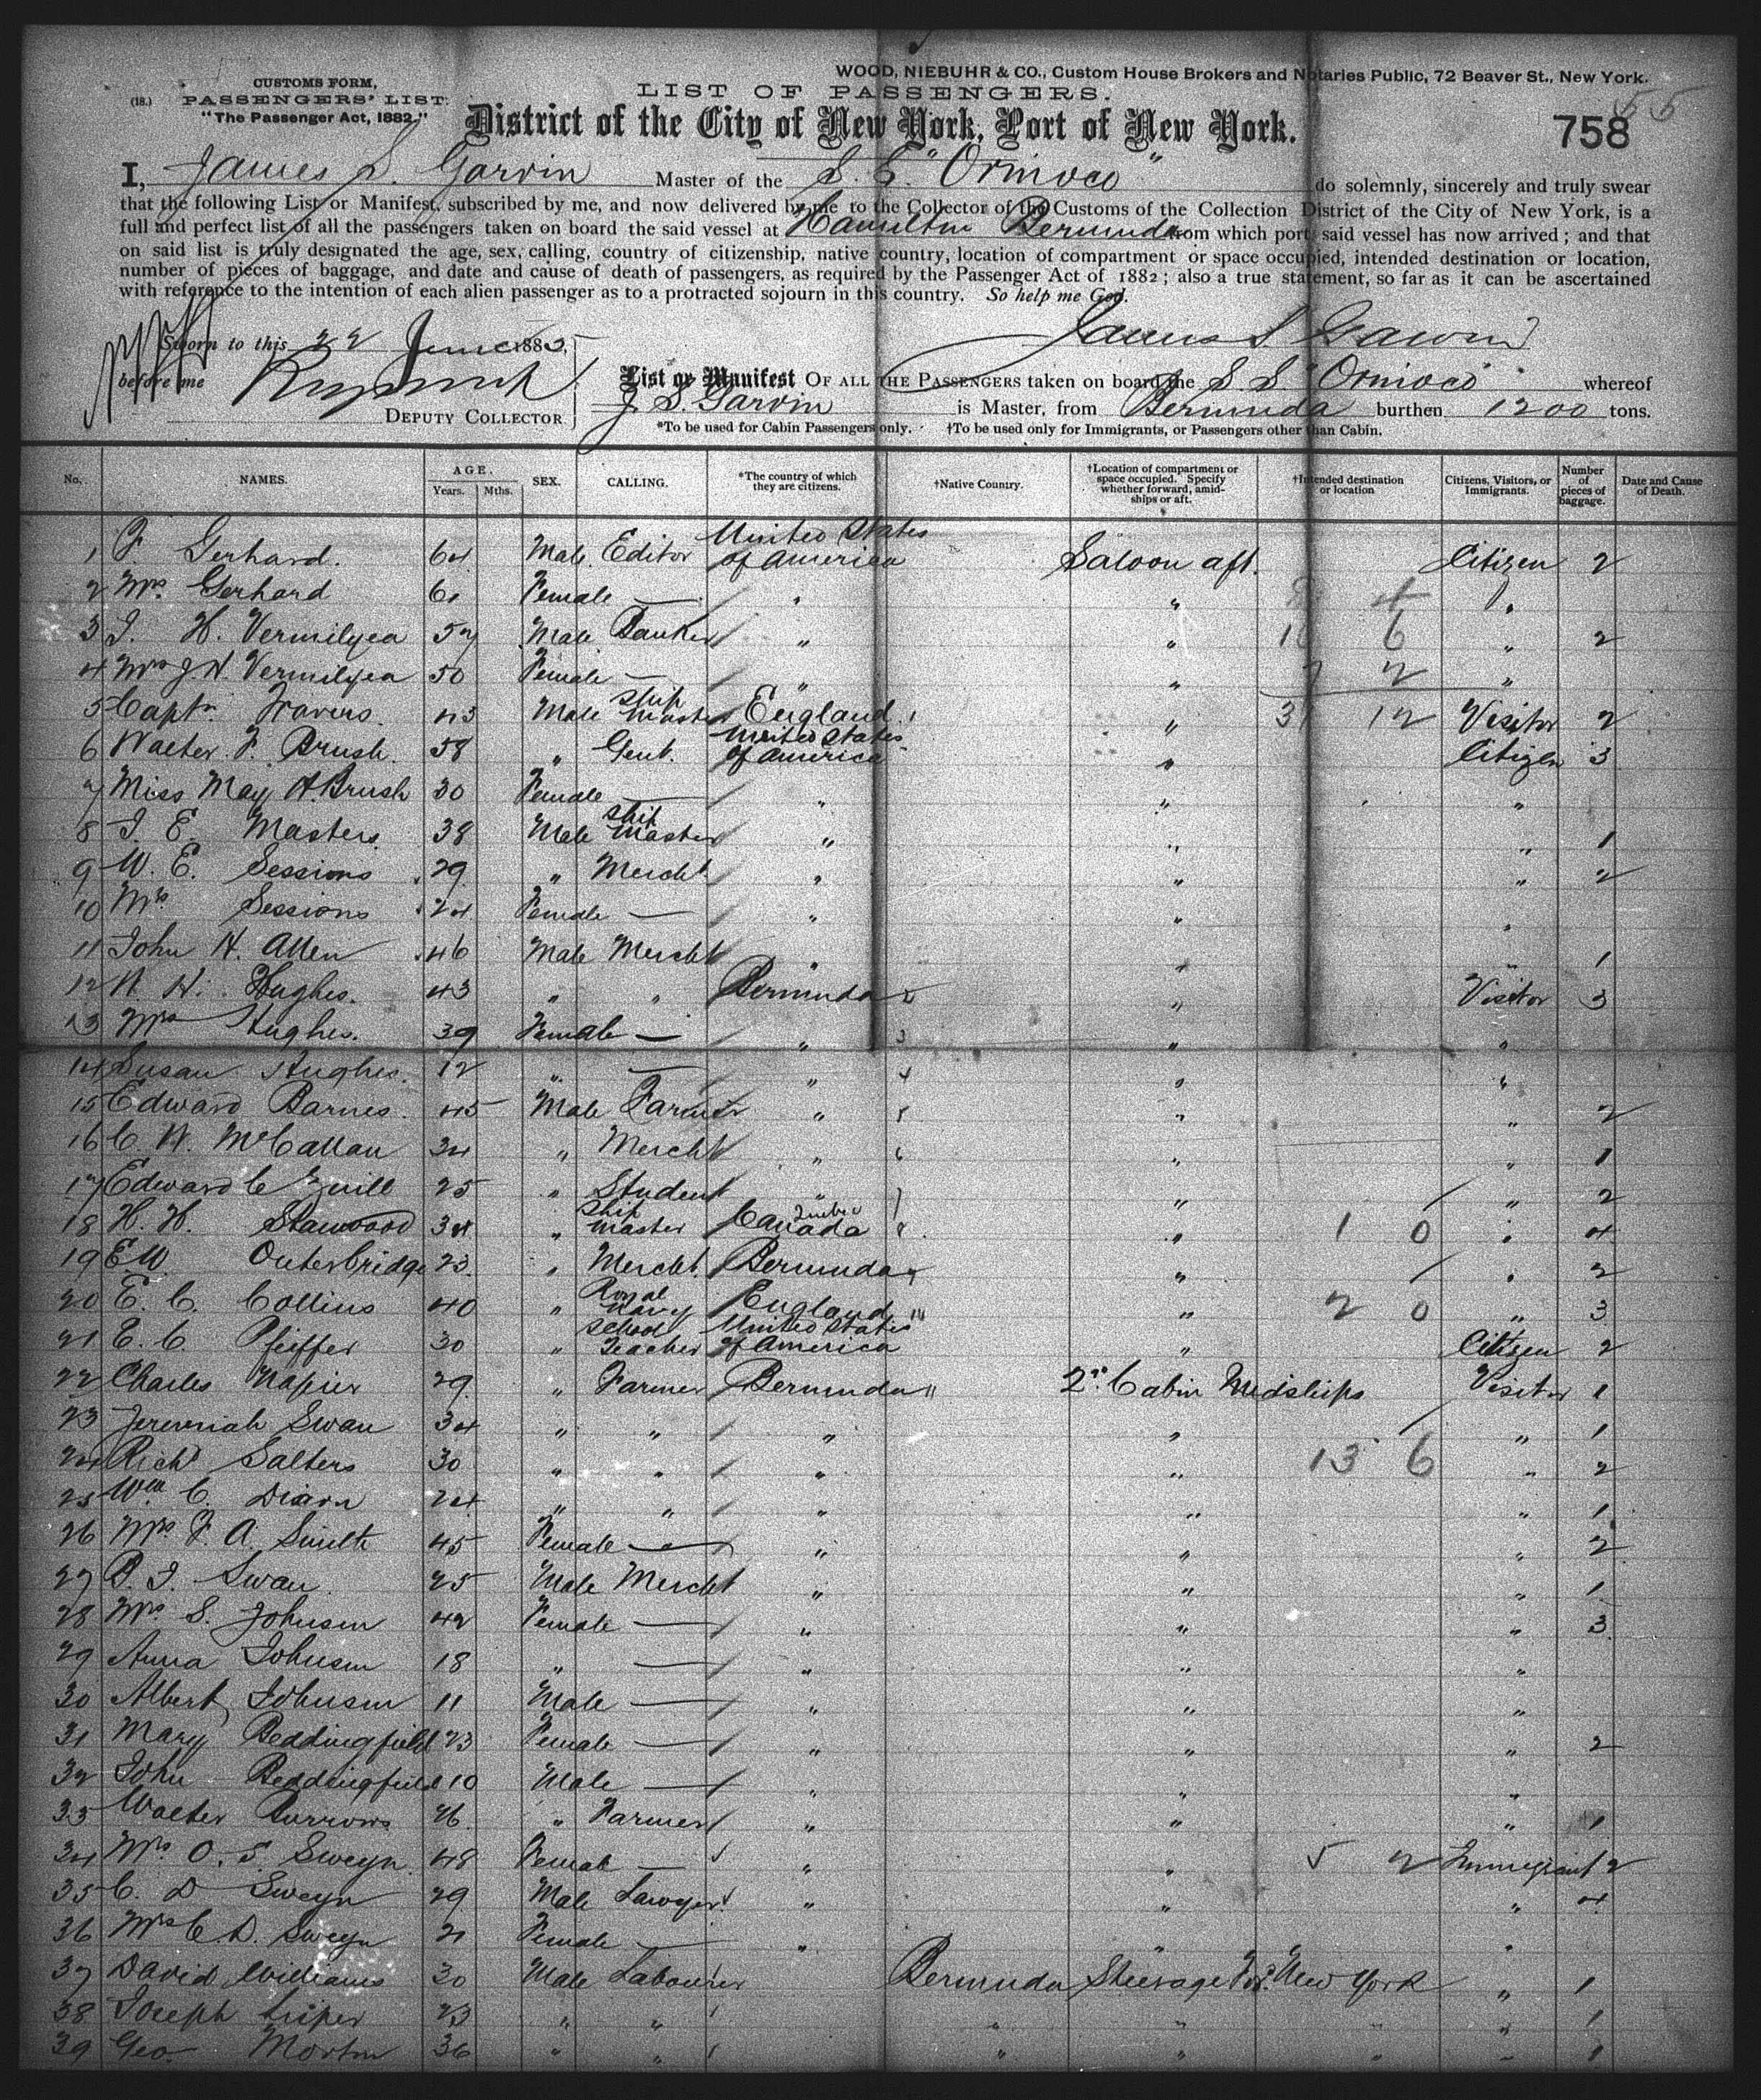 WOOD, NIEBUHR & CO., Custom House Brokers and Notaries Public, 72 Beaver St., New York.
CUSTOMS FORM,
(18.) PASSENGERS' LIST.
"The Passenger Act, 1882."
LIST OF PASSENGERS.
55
District of the City of New York, Port of New York.
758
I, James S. Garvin Master of the S.S. "Orinoco" do solemnly, sincerely and truly swear
that the following List or Manifest, subscribed by me, and now delivered by me to the Collector of the Customs of the Collection District of the City of New York, is a
full and perfect list of all the passengers taken on board the said vessel at Hamilton Bermuda from which port said vessel has now arrived; and that
on said list is truly designated the age, sex, calling, country of citizenship, native country, location of compartment or space occupied, intended destination or location,
number of pieces of baggage, and date and cause of death of passengers, as required by the Passenger Act of 1882; also a true statement, so far as it can be ascertained
with reference to the intention of each alien passenger as to a protracted sojourn in this country. So help me God.
Sworn to this 22 June 1885, James S. Garvin
before me
DEPUTY COLLECTOR
List or Manifest OF ALL THE PASSENGERS taken on board the S.S "Orinoco" whereof
J. S. Garvin is Master, from Bermuda burthen 1200 tons.
*To be used for Cabin Passengers only. †To be used only for Immigrants, or Passengers other than Cabin.
No. NAMES. AGE. Years. Mths. SEX. CALLING. *The country of which they are citizens. †Native Country. †Location of compartment or space occupied. Specify whether forward, amidships or aft. †Intended destination or location Citizens, Visitors, or Immigrants. Number of pieces of baggage. Date and Cause of Death.
1 F Gerhard. 64 Male Editor United States of America Saloon aft. Citizen 2
2 Mrs. Gerhard 61 Female — " " 4 "
3 J. H. Vermilyea 57 Male Banker " " 6 " 2
4 Mrs J H. Vermilyea 50 Female — " " 7 2 "
5 Captn Travers. 43 Male Ship Master England 1 " 31 12 Visitor 2
6 Walter F. Brush. 58 " Gent. United States of America " Citizen 3
7 Miss May A. Brush 30 Female — " " "
8 J. E. Masters 38 Male Ship Master " " " 1
9 W. E. Sessions 29 " Mercht " " " 2
10 Mrs Sessions 24 Female — " " "
11 John H. Allen 46 Male Mercht " " " 1
12 N. H. Hughes. 43 " " Bermuda 2 " Visitor 3
13 Mrs Hughes. 39 Female — " 3 " "
14 Susan Hughes. 12 " — " 4 " "
15 Edward Barnes. 45 Male Farmer " 5 " " 2
16 C. W. McCallan 34 " Mercht " 6 " " 1
17 Edward C Zuill 25 " Student " 7 " " 2
18 H. H. Stawood 34 " Ship master Canada Quebec 8 " 1 0 " 4
19 E W Outerbridge 23. " Mercht. Bermuda 9 " " 2
20 E. C. Collins 40 " Royal Navy England 10 " 2 0 " 3
21 E. C. Pfeiffer 30 " School Teacher United States of America " Citizen 2
22 Charles Napier 29 " Farmer Bermuda 11 2nd Cabin Midships Visitor 1
23 Jeremiah Swan 34 " " " " " 1
24 Richd Salters 30 " " " " 13 6 " 2
25 Wm C. 24 " " " " " 1
26 Mrs F. A. Smith 45 Female — " " " 2
27 B. J. Swan 25 Male Mercht " " " 1
28 Mrs S. Johnson 42 Female — " " " 3
29 Anna Johnson 18 " — " " "
30 Albert Johnson 11 Male — " " "
31 Mary Beddingfield 23 Female — " " " 2
32 John Beddingfield 10 Male — " " "
33 Walter Burrows 26 " Farmer " " " 1
34 Mrs O. S. Sweyn 48 Female — " " 5 2 Immigrant 2
35 C. D Sweyn 29 Male Lawyer " " " 4
36 Mrs C D. Sweyn 21 Female — " " " "
37 David Williams 30 Male Labourer Bermuda Steerage New York " 1
38 Joseph 23 " " " " " " 1
39 Geo. Morton 36 " " " " " " 1